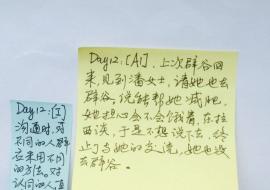 Day12:[I]
沟通时,对
不同的人群
应采用不同
的方法。对
认同的人直
Day12:[A1].上次辟谷回
来,见到潘女士,请她也去
辟谷。说能帮她减肥,
她担心会不会饿着,在拉
西谈,于是不想说下去,终
止了与她的交流,她也没
去辟谷。